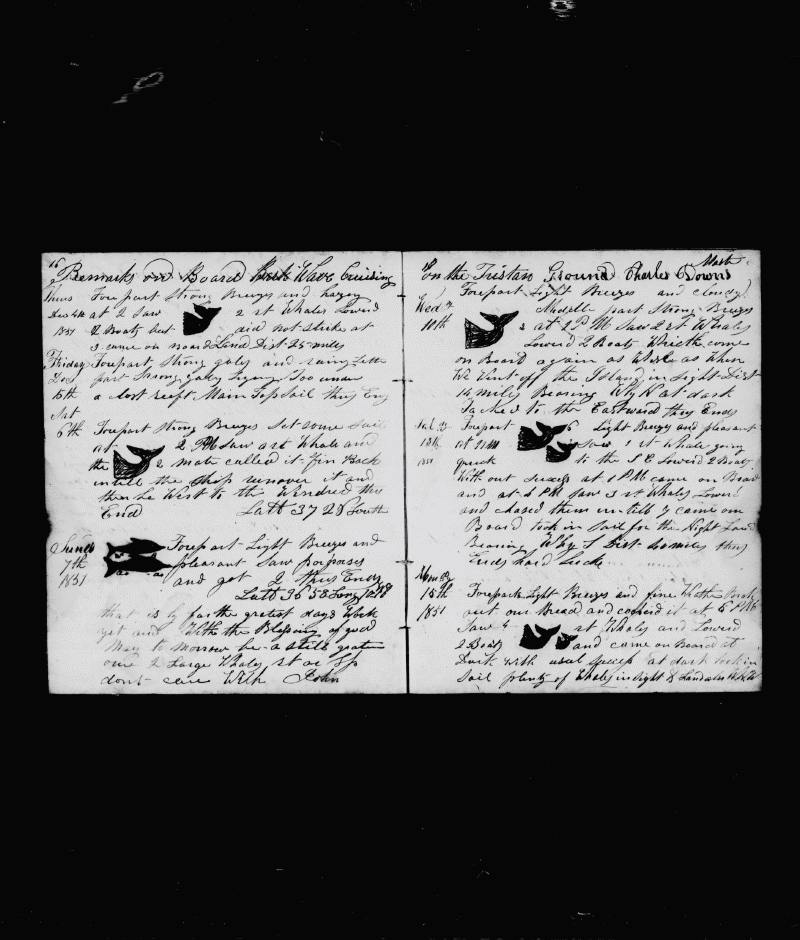 16
Remarks on Board Bark Wave Cruising
Thurs Forepart Strong Breezes and hazey
Dec 4th at 2 Saw 2 st Whales Lowerd
1851 2 Boats but did not Strike at
3 came on board Land Dist 25 miles
Friday Forepart Strong gales and rainy Latter
Dec part Strong gales Laying Too under
5th a clost reeft Main Topsail thus End
Sat
6th Forepart Strong Breezes Set some Sail
at 2 PM Saw a st Whale and
the 2 mate called it Fin Back
untill the Ship runover it and
then he West to the Windred thus
End Latt 37 28 South
Sund Forepart Light Breezes and
7th pleasant Saw porpoises
1851 and got 2 thus Ends
Latt 36 58 Long
that is by farthe gretest days Work
yet and With the Blessing of god
May to Morrow be a still grater
one 2 Large Whales st or Sp
dont care Wich John
Mast
On the Tristan Ground Charles Downs
Forepart Light Breezes and cloudy
Wed Middle part Strong Breezes
10th at 2 PM Saw 2 st Whales
Lowerd 2 Boats Wricth come
on Board again as Wise as When
We Went of the Island in Sight Dist
14 miles Bearing at dark
Tacked to the Eastward thus Ends
Sat Forepart Light Breezes and pleasant
13th at 11 AM Saw 1 st Whale going
1851 quick to the S E Lowerd 2 Boats
With out sucess at 1 PM came on Board
and at 4 PM Saw 3 st Whales Lowerd
and chased them untill 7 came on
Board took in Sail for the Night Land
Bearing Dist 40 miles thus
Ends hard Luck
Mon
15th Forepart Light Breezes and fine Wether Broke
1851 out our Bread and cooperd it at 5 PM
Saw 4 st Whales and Lowerd
2 Boats and came on Board at
Dark With usual Sucess at dark took in
Sail plenty of Whales in Sight & Land